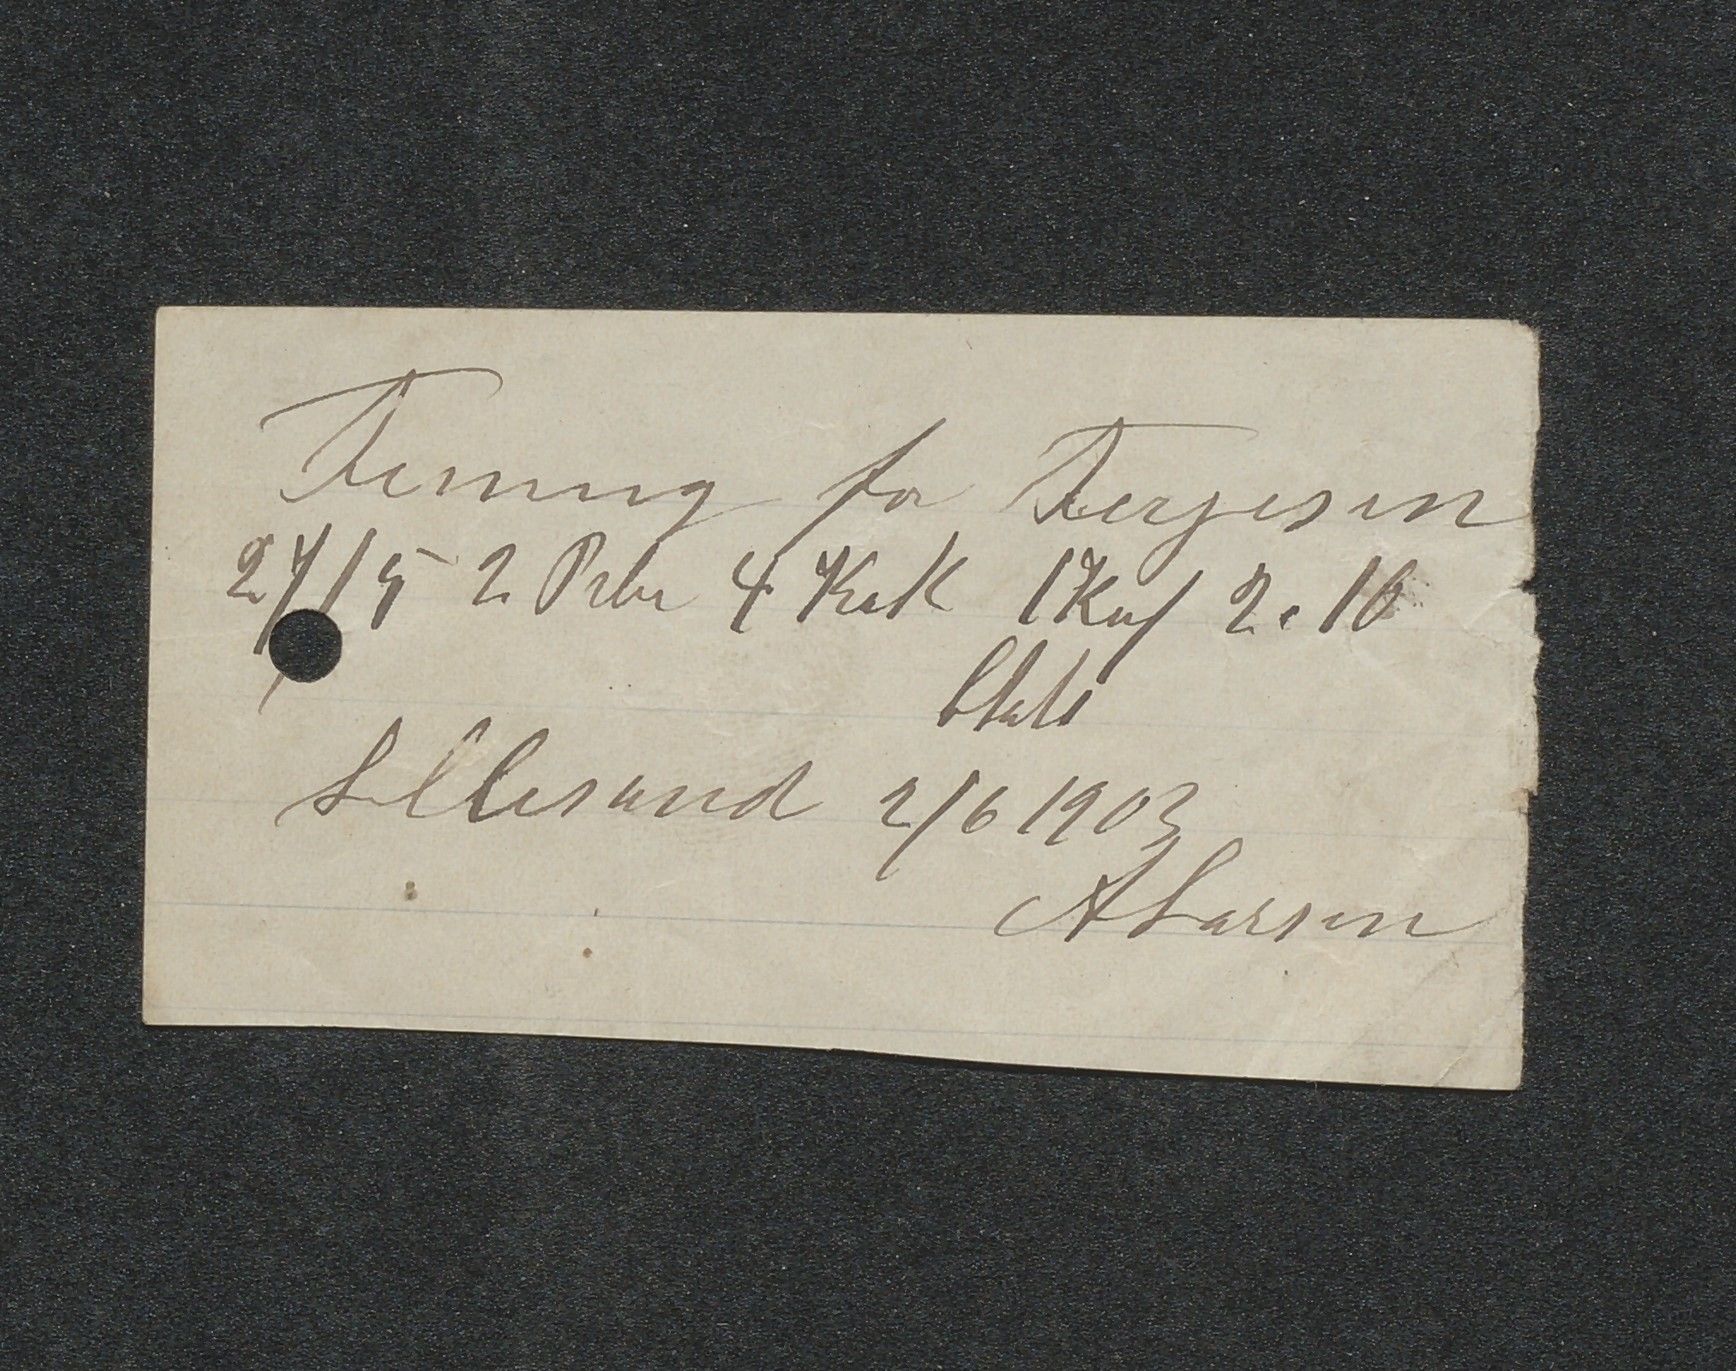 Tening for Tergesen
27/5 2 Pelser 4 Kak 1 Kaf 2.10
btalt
Lillesand 2/6 1903
A Larsen